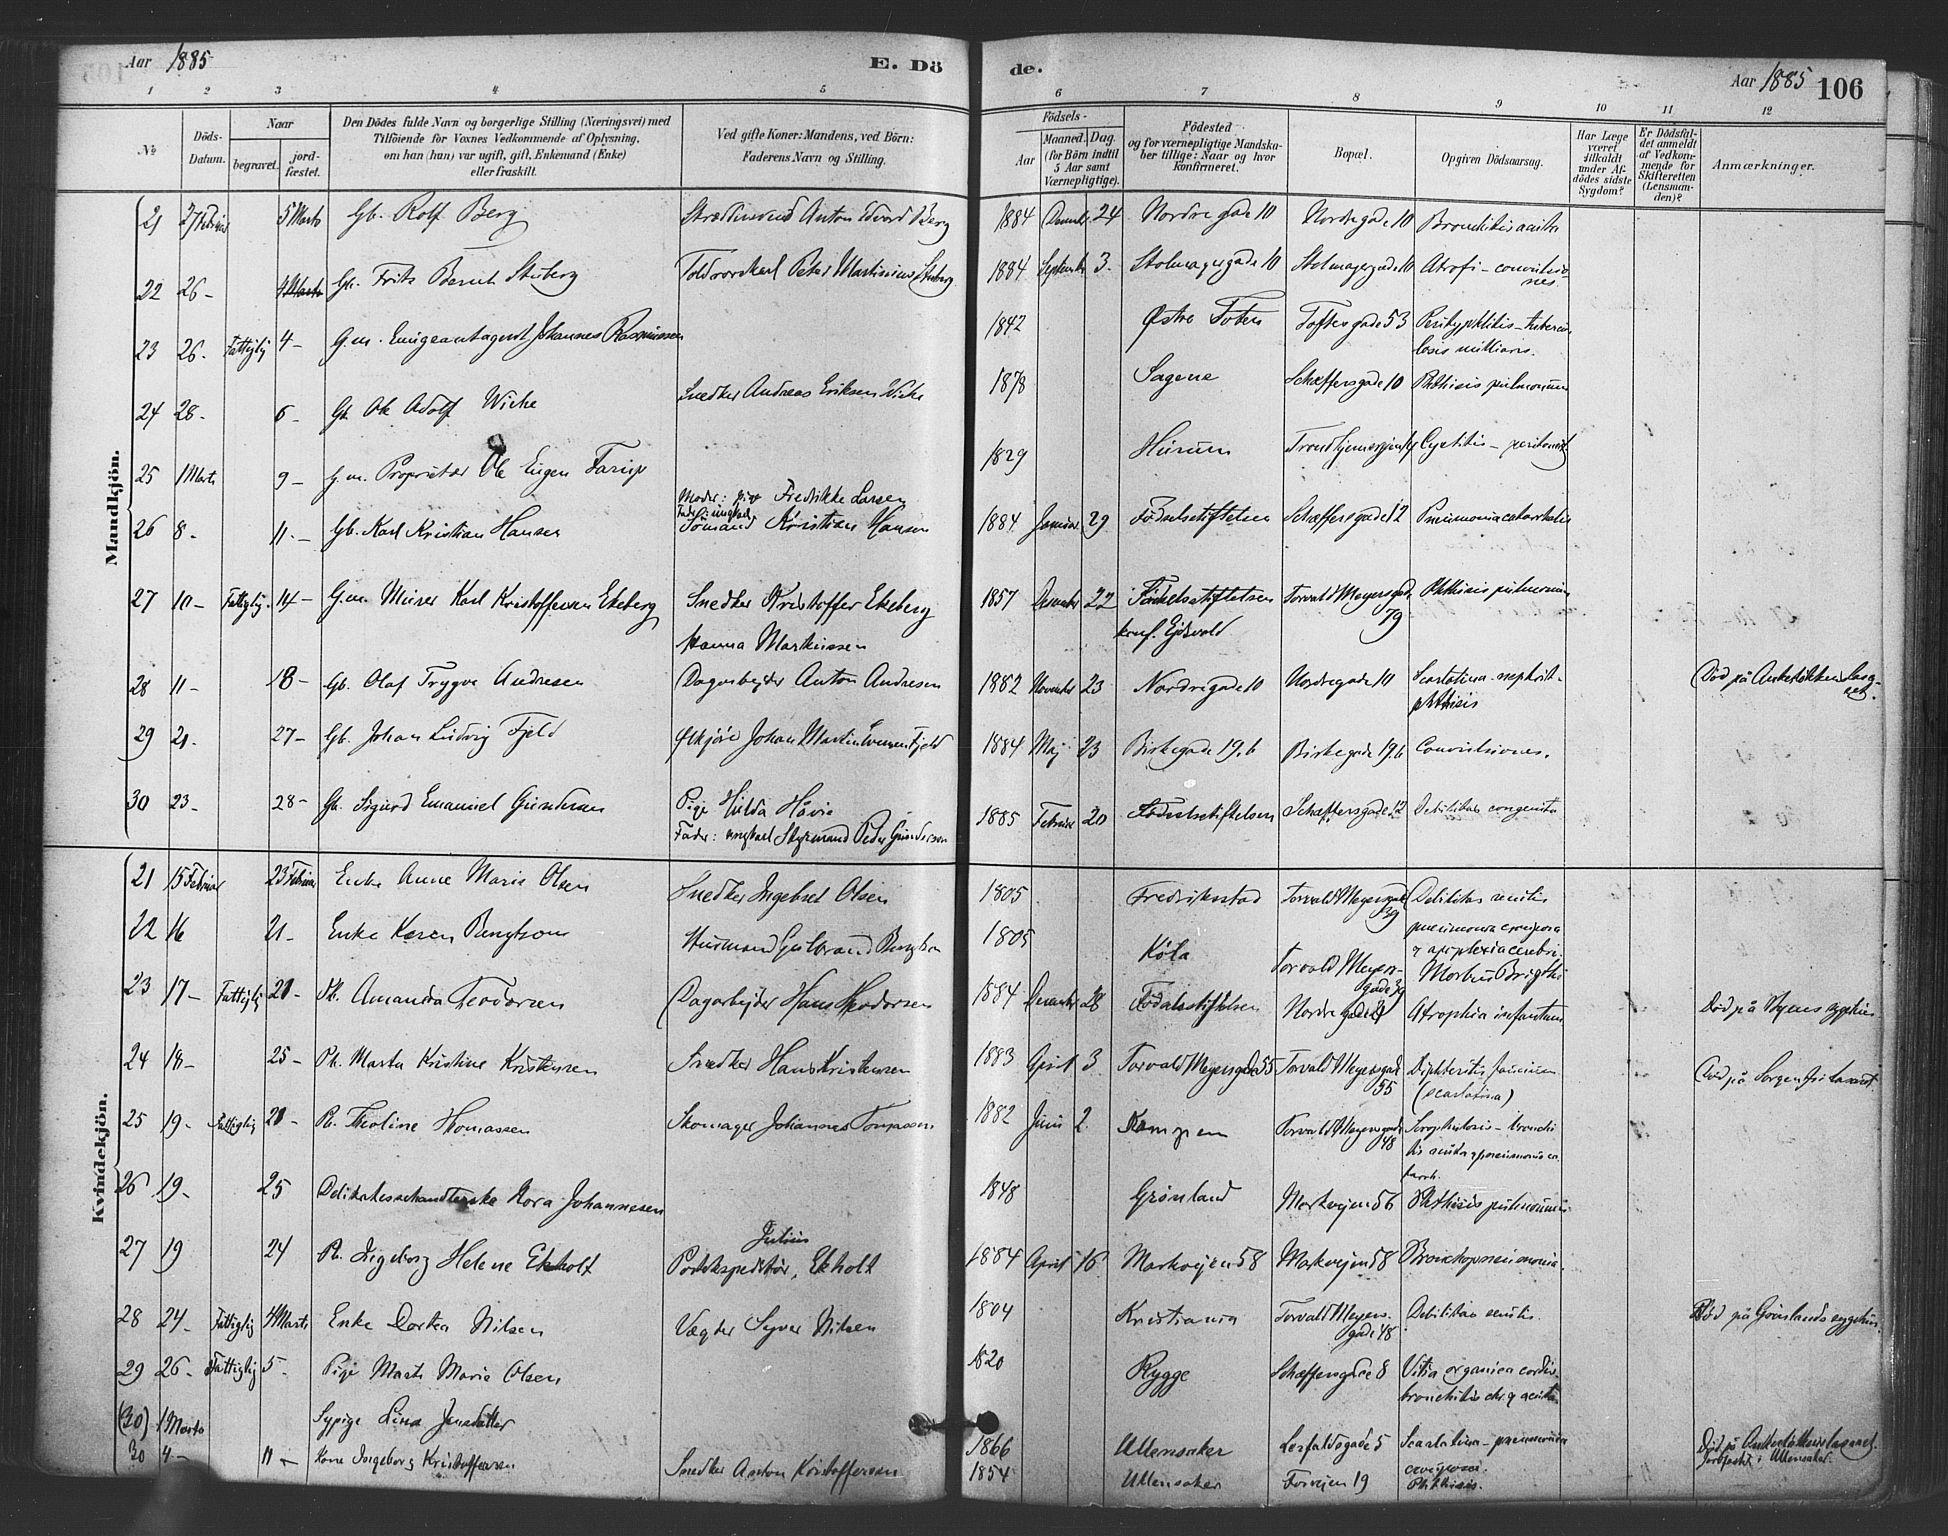 Aar 1885
E. Dö
de.
Aar 1885 106
1 2 3 4 5 6 7 8 9 10 11 12
№
Döds-Datum.
Naar
begravet. jord-fæstet.
Den Dödes fulde Navn og borgerlige Stilling (Næringsvei) med
Tilföiende for Voxnes Vedkommende af Oplysning,
om han (hun) var ugift, gift, Enkemand (Enke)
eller fraskilt.
Ved gifte Koner: Mandens, ved Börn:
Faderens Navn og Stilling.
Födsels-
Aar Maaned. Dag.
(for Börn indtil
5 Aar samt
Værnepligtige).
Födested
og for værnepligtige Mandska-
ber tillige: Naar og hvor
konfirmeret.
Bopæl.
Opgiven Dödsaarsag.
Har Læge
været
tilkaldt
under Af-
dödes sidste
Sygdom?
Er Dödsfal-
det anmeldt
af Vedkom-
mende for
Skifteretten
(Lensman-
den)?
Anmærkninger.
Mandkjön.
21 27 Februar 5 Marts Gb. Rolf Berg Anton Edvard Berg 1884 December 24 Nordre gade 10 Nordregade 10 Bronchitis acuta
22 26 - 4 Marts Gb. Frits Bernt Stuberg Peter Martinius Stuberg 1884 September 3. Stolmagergade 10 Stolmagergade 10 Atrofi - convulsio-
nes
23 26. Fattiglig 4 - G.m. Emigrantagent Johannes Rasmussen 1842 Østre Toten Toftesgade 53 Perityphlitis - tubercu
losis miliaris.
24 28. 6 - Gb. Ole Adolf Wicke Snedker Andreas Eriksen Wicke 1878 Sagene Schæffersgade 10 Phthisis pulmonum
25 1 Marts 9 - g.m. Proprietær Ole Eugen 1829 Hurum Cystitis - peritonit
Moder: pige Fredrikke Larsen
26 8. 11. - Gb. Karl Kristian Hansen Fader: ungkarl Sömand Kristian Hansen 1884 Januar 29 Födselsstiftelsen Schæffersgade 12 Pneumonia catarrhalis
27 10 - Fattiglig. 14 - G.m. Murer Karl Kristoffersen Ekeberg Snedker Kristoffer Ekeberg 1857 December 22 Födselsstiftelsen Torvald Meyersgade 79 Phthisis pulmonum
Hanna Markussen konf. Ejdsvold
28 11 - 18 - Gb. Olaf Trygve Andresen Dagarbejder Anton Andresen 1882 November 23 Nordregade 10 Nordregade 10 Scarlatina - nephrit -
phthisis Död på Ankerlökken Lasa-
ret.
29 21. 27 - Gb. Johan Ludvig Fjeld Johan Martin Fjeld 1884 Maj 23 Birkegade 19.b Birkegade 19.b Convulsiones.
30 23 - 28 - Gb. Sigurd Emanuel Gundersen Pige Hulda 1885 Februar 20 Födselsstiftelsen Schæffersgade 12 Debilitas congenita
Fader: ungkarl Styrmand Peder Gundersen
Kvindekjön.
21 15 Februar 23 Februar Enke Anne Marie Olsen Snedker Ingebret Olsen 1805 Fredriksstad Torvald Meyersgade 39 Debilitas senilis
22 16 21 - Enke Karen Bengtson Husmand Gulbrand Bengtson 1805 Köla Torvald Meyers-
gade 39 pneumonia crouposa
& apoplexia cerebri.
Morbus Brigthi
23 17 - Fattiglig 21 - Pb. Amanda Teodorsen Dagarbejder Hans Theodorsen 1884 December 28 Födselsstiftelsen Nordregade Atrophia infantum Död på sygehus
24 18 - 25 - Pb. Marta Kristine Kristensen Snedker Hans Kristensen 1883 April 3 Torvald Meyersgade 55 Torvald Meyersgade 55 Diphteritis faucium
(scarlatina) Död på Sorgenfri Lasaret
25 19 - Fattiglig 21 - Pb. Theoline Thomassen Skomager Johannes Tomassen 1882 Juni 2 Kampen Torvald Meyersgade 48 Scrophulosis - bronchi
tis acuta & pneumonia ca
tarrh.
26 19. 25 Delikatessehandlerske Nora Johannesen 1848 Grönland Markvejen 56 Phthisis pulmonum
27 19 24 Pb. Ingeborg Helene Ekholt Postekspeditör, Julius Ekholt 1884 April 16 Markvejen 58 Markvejen 58 Bronchopneumonia.
28 24. Fattiglig 4 Marts Enke Dortea Nilsen Vægter Syver Nilsen 1804 Kristiania Torvald Meyers-
gade 48 Debilitas senilis. Död på Grönlands sygehus.
29 26 - Fattiglig 5 - Pige Marte Marie Olsen 1820 Rygge Schæffersgade 8 Vitia organica cordis
bronchitis chr. & acuta
(30) 1 Marts Sypige Lina Jensdatter 1866 Ullensaker 5 Scarlatina - pneumonia
crouposa. Död på Ankerlökkens lasaret.
Jordfæstet i Ullensaker.
30 4 - 11 - Kone Ingeborg Kristoffersen Snedker Anton Kristoffersen 1854 Ullensaker Forvejen 19 Phthisis.